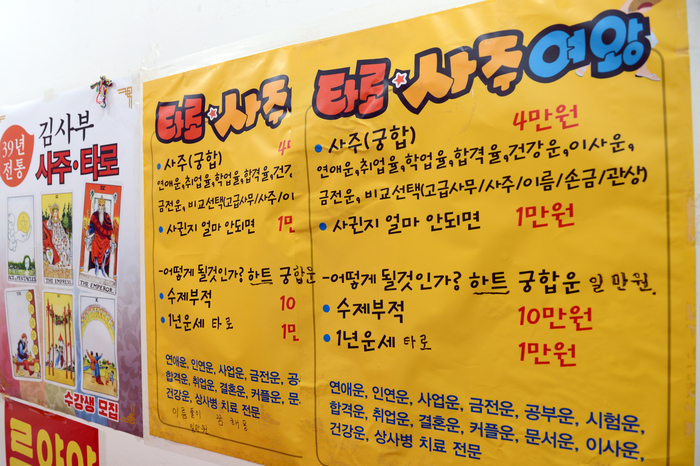 39년
전통
김사부
사주·타로
THE EMPRESS
THE EMPEROR
수강생 모집
타로★사주
• 사주(궁합)
연애운,취업율,학업율,합격율,건강
금전운, 비교선택(고급사무/사주/이
• 사귄지 얼마 안되면 1만
-어떻게 될것인가? 하트 궁합운
• 수제부적 10
• 1년운세 타로 1만
연애운, 인연운, 사업운, 금전운, 공
합격운, 취업운, 결혼운, 커플운, 문
건강운, 상사병 치료 전문
이름 풀이 꿈 해몽
일만원
타로★사주여왕
• 사주(궁합) 4만원
연애운,취업율,학업율,합격율,건강운,이사운,
금전운, 비교선택(고급사무/사주/이름/손금/관상)
• 사귄지 얼마 안되면 1만원
-어떻게 될것인가? 하트 궁합운 일만원.
• 수제부적 10만원
• 1년운세 타로 1만원
연애운, 인연운, 사업운, 금전운, 공부운, 시험운,
합격운, 취업운, 결혼운, 커플운, 문서운, 이사운,
건강운, 상사병 치료 전문